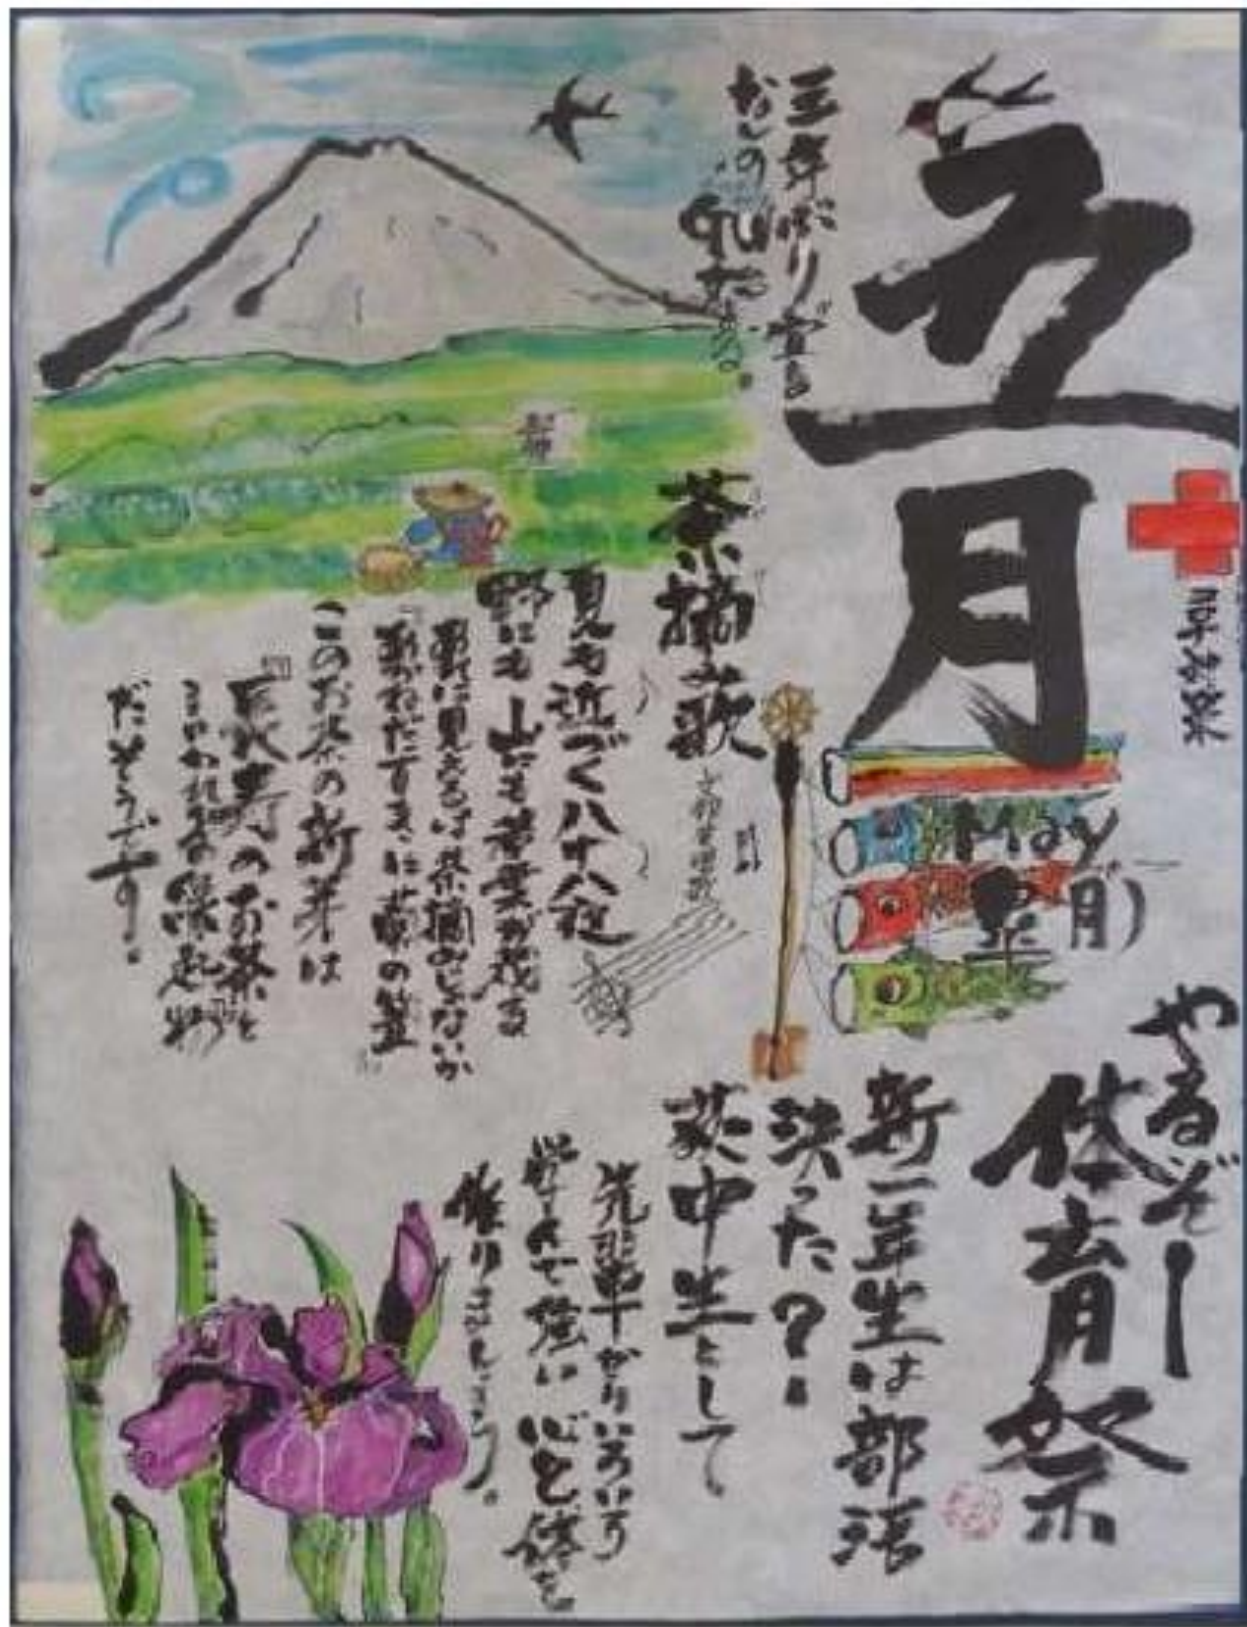 五月
May
皐月)
三年ぶり宣言
なしの
GW
やるぞー
体育祭
新一年生は部活
決った?!
萩中生として
先輩からいろいろ
学んで強い心と体を
作りましょう。
茶摘み歌
文部省唱歌
夏も近づく八十八夜
野にも山にも若葉が茂る
あれに見えるは茶摘みじゃないか
あかねだすきに菅の笠
このお茶の新芽は
『長寿のお茶』と
いわれる縁起物
だそうです。